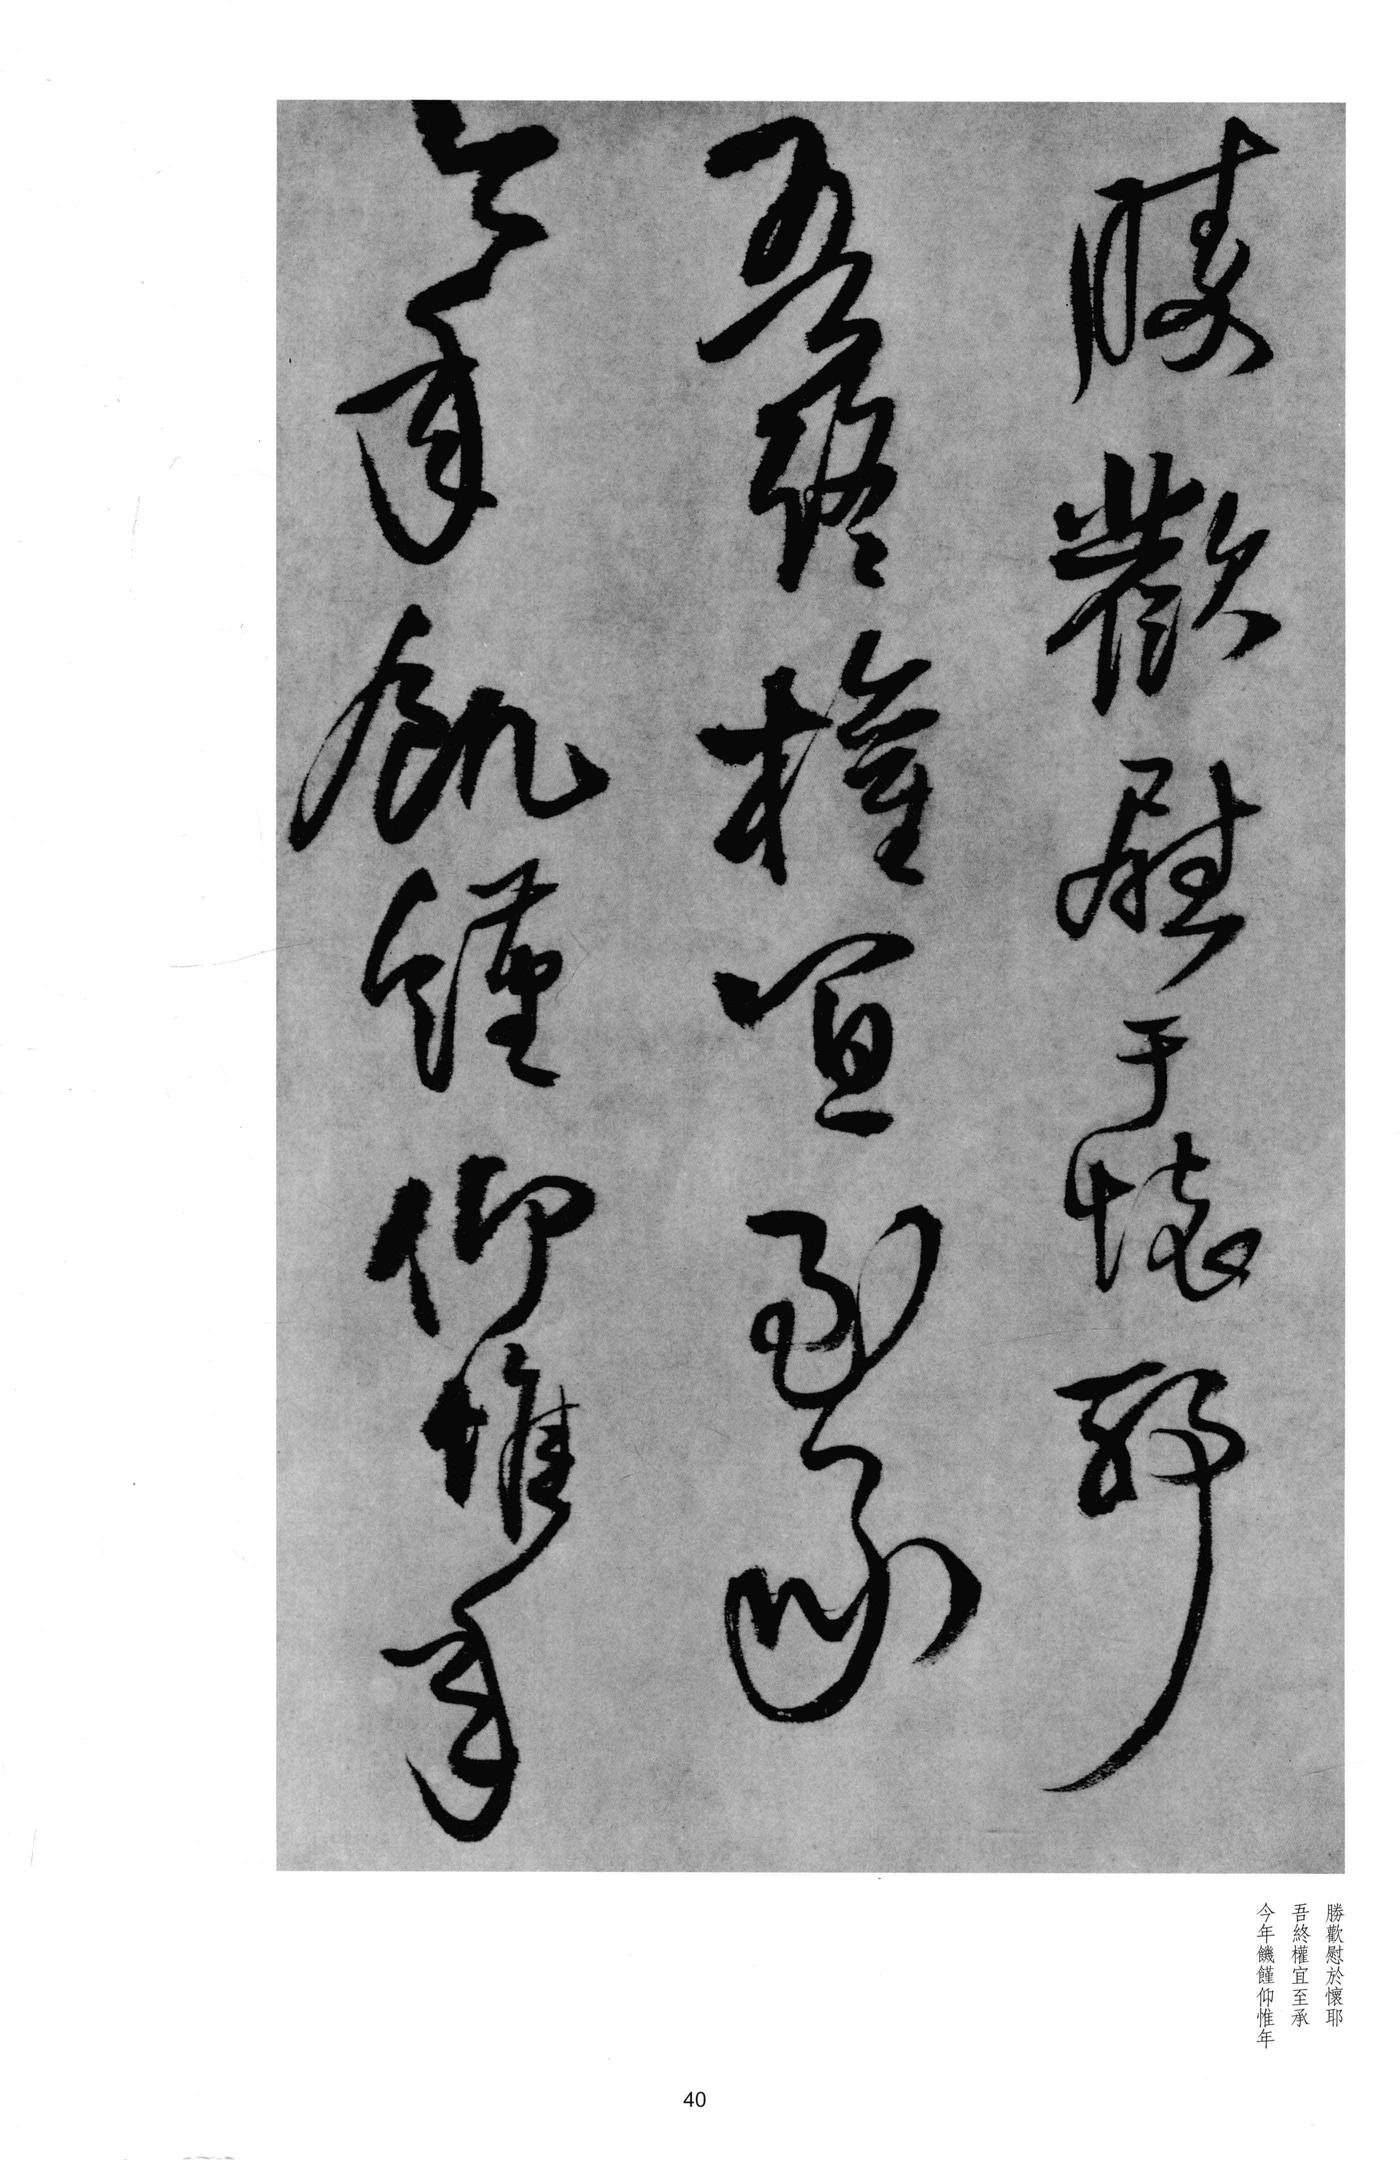 勝歡慰于懷耶
吾終權宜至承
今年飢饉仰惟年
勝歡慰於懷耶
吾終權宜至承
今年饑饉仰惟年
40